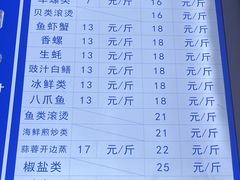 7 元/斤 16 元/斤
贝类滚烫 16 元/斤
鱼虾蟹 13 元/斤 18 元/斤
香螺 13 元/斤 18 元/斤
生蚝 13 元/斤 18 元/斤
豉汁白鳝 13 元/斤 18 元/斤
冰鲜类 13 元/斤 18 元/斤
八爪鱼 13 元/斤 18 元/斤
鱼类滚烫 21 元/斤
海鲜煎炒类 21 元/斤
蒜蓉开边蒸 17 元/斤 22 元/斤
椒盐类 25 元/斤